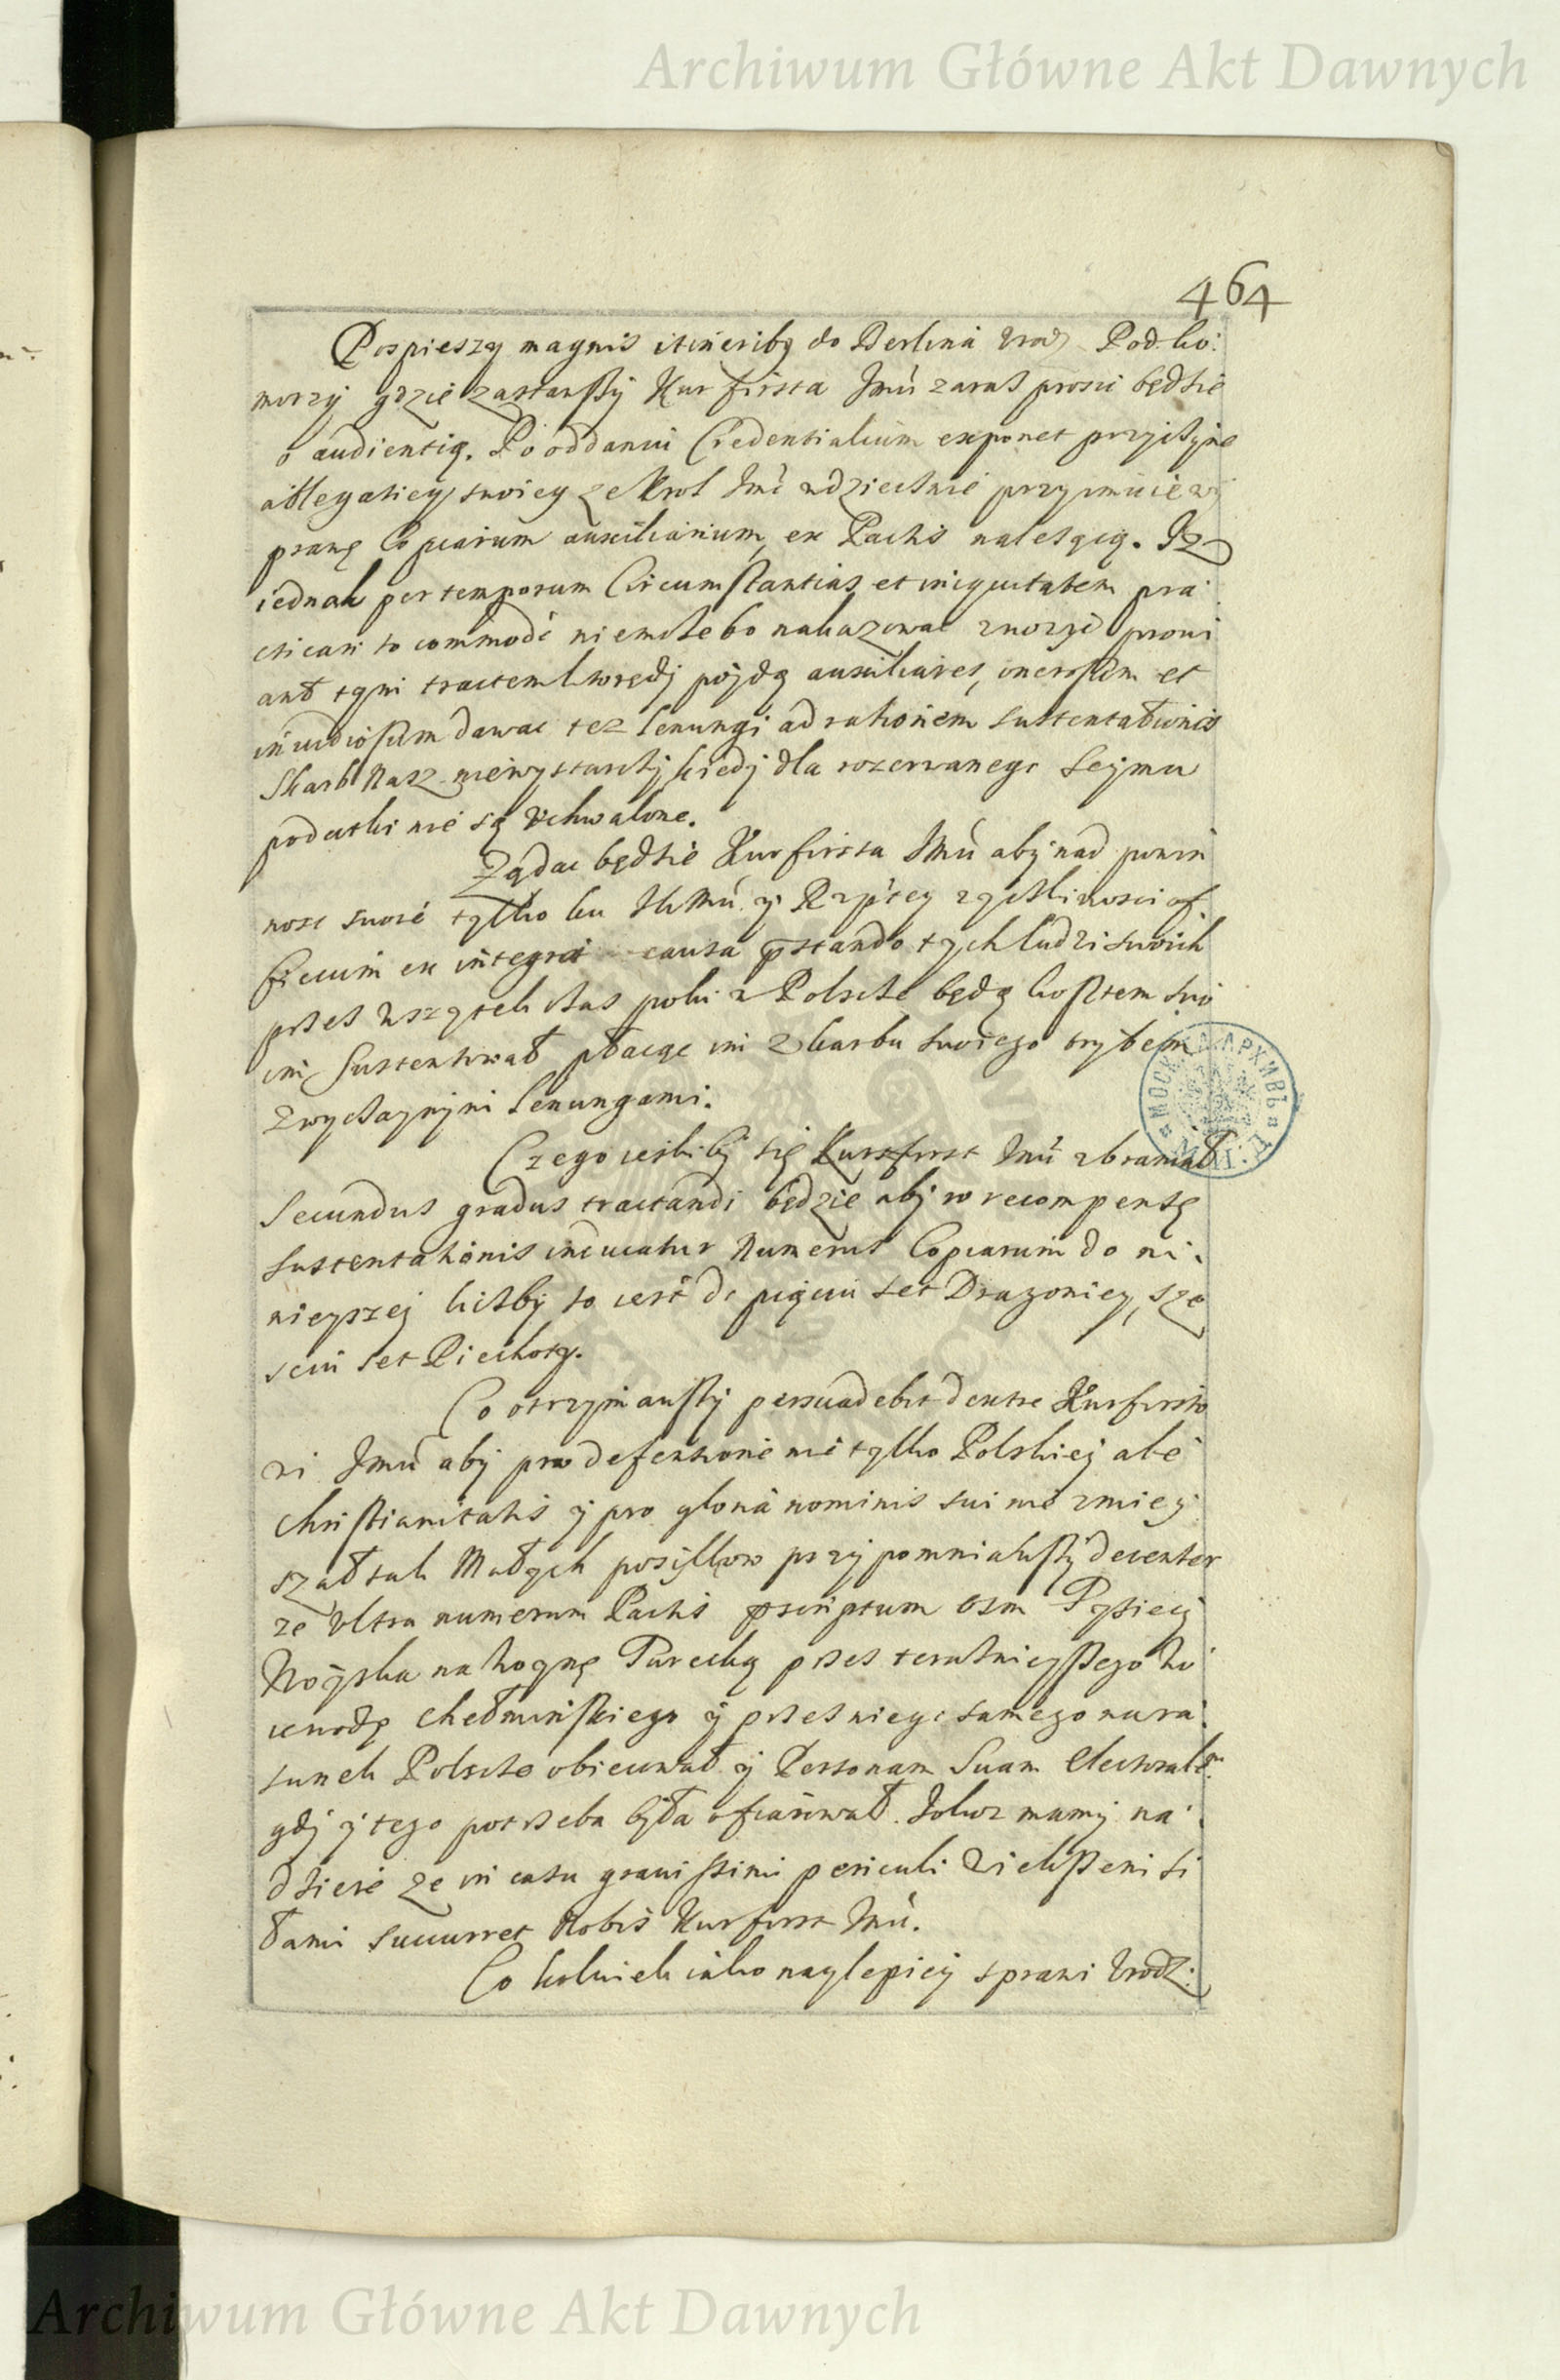 Archiwum Główne Akt Dawnych
464
Pospieszy magnis itineribq do Berlina Urodz. Podko:
morzy gdzie zastawszy Kurfirsta Jmci zaras prosić będzie
o audientią. Po oddaniu Credentialium exponet przyczynę
ablegatiey swoiey ze Krol Jmc wdzięcznie przyimuie wy
prawę Copiarum auxiliarium, ex Pactis należącą. Iz
iednak per temporum Circumstantias et iniquitatem pra
cticari to commodè niemoże bo nakazować znosyć prowi
ant tymi tractem ktorędy póydą auxiliares, onerosum et
inuidiosum dawac tez lenungi ad rationem sustentationis
Skarb Nasz niewystarczy kiedy dla rozerwanego Seymu
podatki nie są vchwalone.
Ządac będzie Kurfirsta Jmci aby nad powin
nosc swoię tylko ku JKMci y Rzptey zyczliwosci of
ficium ex integro causa pstando tych ludzi swoich
przez wszytek czas poki w Polscze będą kosztem swo
im Sustentował płacąc im z skarbu swoiego trybem
zwyczaynymi lenungami.
Czego iesliby się Kurfirst Jmci zbraniał
Secundus gradus tractandi będzie aby w recompensę
sustentationis inducatur Numerus Copiarum do mi
nieyszey liczby to iest do pięciu set Dragoniey, sze
sciu set Piechoty.
Co otrzymawszy persuadebit dextre Kurfirsto
wi Jmci aby pro defensione nie tylko Polskiey ale
Christianitatis y pro gloria nominis sui nie zmiey
szał tak Małych posiłkow przypomniawszy decenter
ze vltra numerum Pactis pscriptum osm Tysiecy
Woyska na Woynę Turecką przez teraznieyszego Wo
iewodę Chełminskiego y przez niego samego na ra
tunek Polscze obiecował y Personam Suam Electoralem
gdy y tego potrzeba była ofiarował. Jakoz mamy na
dzieię ze in casu grauissimi periculi Wiekszemi si
łami succurret Nobis Kurfirst Jmci.
Cokolwiek iako naylepiey sprawi Urodz:
МОСКОВ. АРХИВЪ М.И.Д.
Archiwum Główne Akt Dawnych